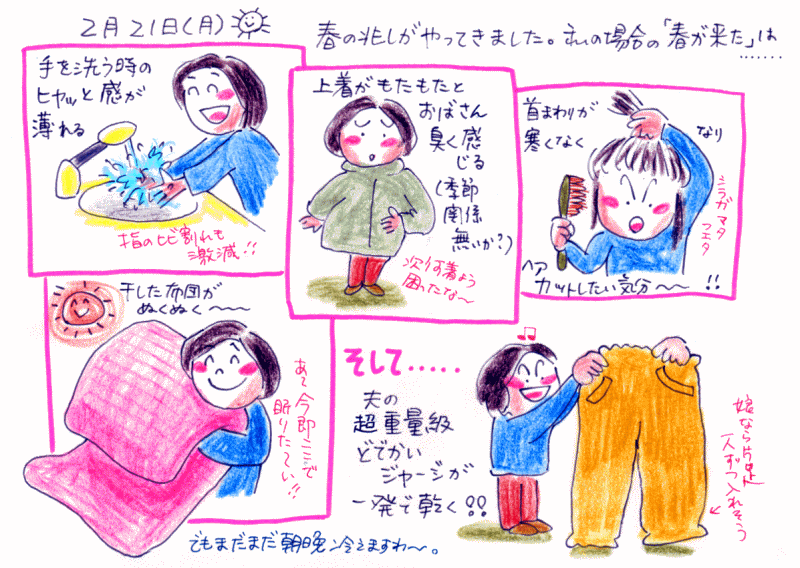 2月21日(月)
春の兆しがやってきました。私の場合の「春が来た」は
.......
手を洗う時の
ヒヤッと感が
薄れる
指のヒビ割れも
激減!!
上着がもたもたと
おばさん
臭く感
じる
(季節
関係
無いか?)
次何着よう
困ったな〜
首まわりが
寒くなく
なり
シラガマタ
フエタ
ヘア
カットしたい気分〜〜!!
干した布団が
ぬくぬく〜〜〜
あ〜今即ここで
眠りたい!!
そして.....
夫の
超重量級
どでかい
ジャージが
一発で乾く!!
娘なら片足に
一人ずつ入れそう
でもまだまだ朝晩冷えますわ〜。